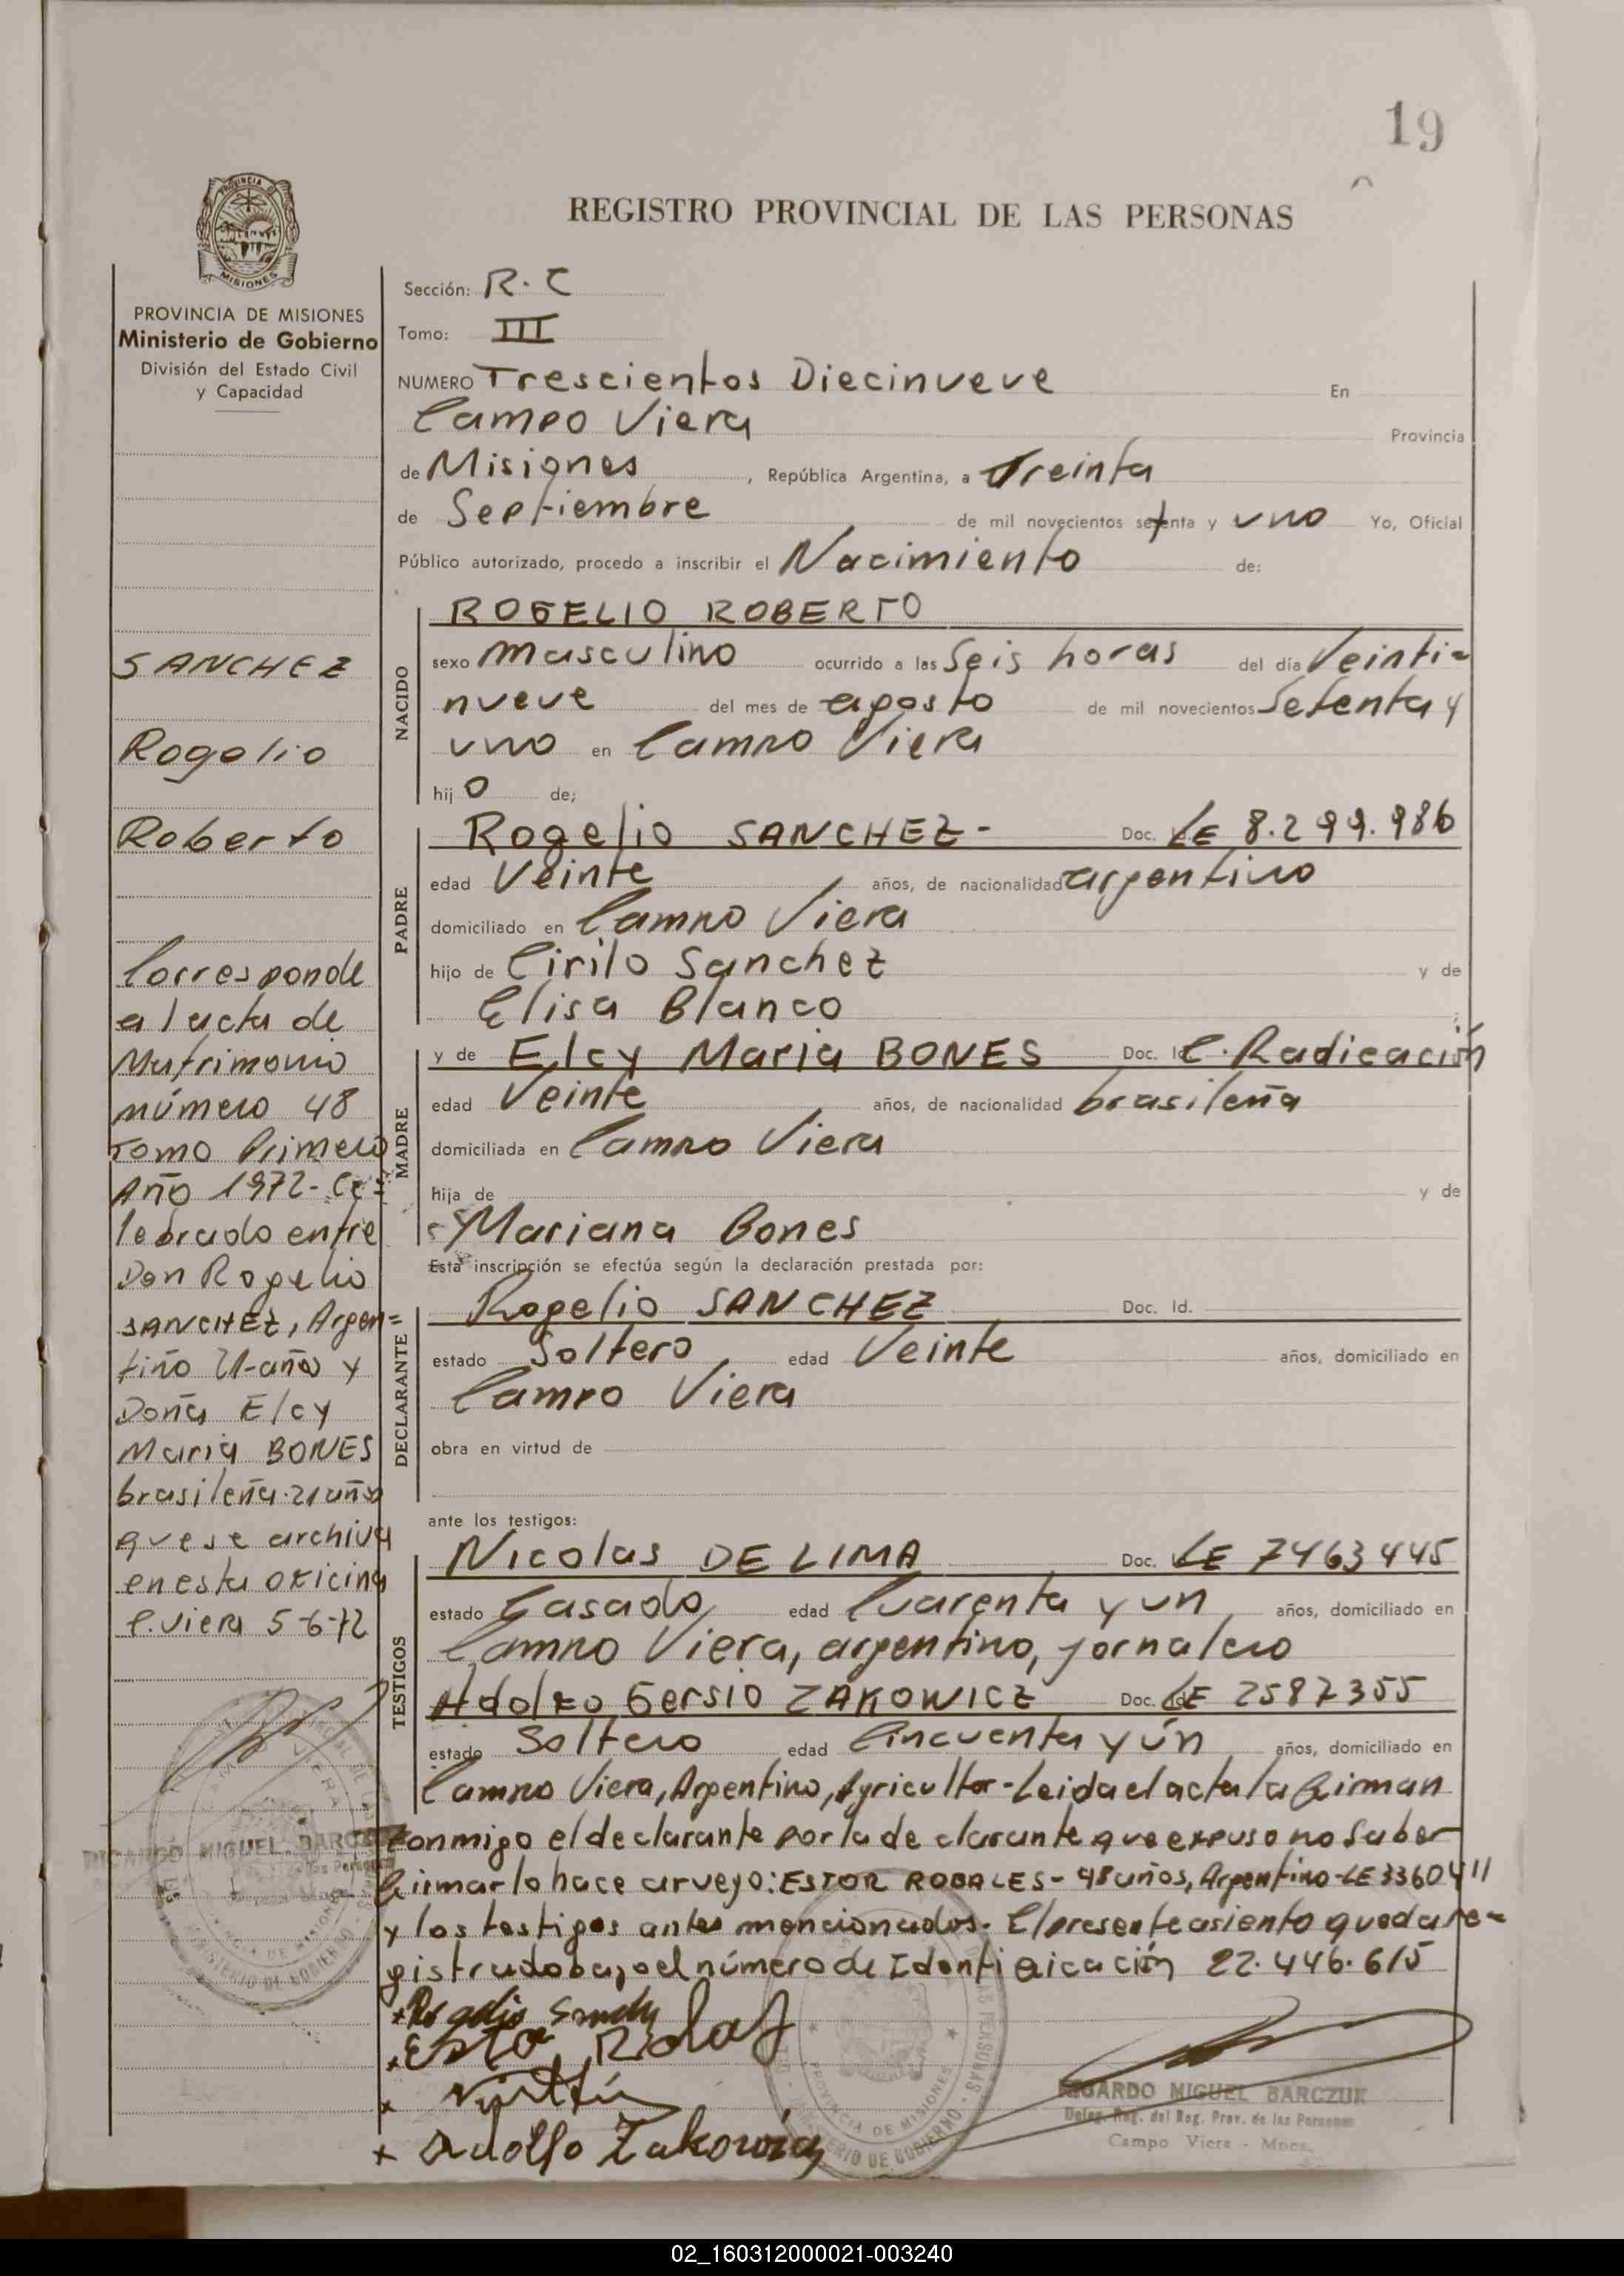 19
REGISTRO PROVINCIAL DE LAS PERSONAS
PROVINCIA DE MISIONES
Ministerio de Gobierno
División del Estado Civil
y Capacidad
SANCHEZ
Rogelio
Roberto
Corresponde
al acta de
Matrimonio
número 48
Tomo Primero
Año 1972- Ce=
lebrado entre
Don Rogelio
SANCHEZ, Argen=
tino 21-años y
Doña Elcy
Maria BONES
brasileña.21 años
que se archiva
en esta oficina
C. Viera 5-6-72
Sección: R.C
Tomo: III
NUMERO Trescientos Diecinueve En
Campo Viera Provincia
de Misiones, República Argentina, a Treinta
de Septiembre de mil novecientos setenta y uno Yo, Oficial
Público autorizado, procedo a inscribir el Nacimiento de:
NACIDO
ROGELIO ROBERTO
sexo masculino ocurrido a las Seis horas del día Veinti=
nueve del mes de agosto de mil novecientos Setenta y
uno en Campo Viera
hijo de;
PADRE
Rogelio SANCHEZ- Doc. LE 8.299.986
edad Veinte años, de nacionalidad argentino
domiciliado en Campo Viera
hijo de Cirilo Sanchez y de
Elisa Blanco
MADRE
y de Elcy Maria BONES Doc. Id C. Radicación
edad Veinte años, de nacionalidad brasileña
domiciliada en Campo Viera
hija de y de
Mariana Bones
Esta inscripción se efectúa según la declaración prestada por:
DECLARANTE
Rogelio SANCHEZ Doc. Id.
estado Soltero edad Veinte años, domiciliado en
Campo Viera
obra en virtud de
ante los testigos:
TESTIGOS
Nicolas DE LIMA Doc. LE 7463445
estado Casado, edad Cuarenta y un años, domiciliado en
Campo Viera, argentino, jornalero
Adolfo Gersio ZAKOWICZ Doc. LE 2587355
estado Soltero edad Cincuenta y ún años, domiciliado en
Campo Viera, Argentino, Agricultor-Leida el acta la firman
conmigo el declarante por la declarante que expuso no saber
firmar lo hace a ruego: ESTOR ROBALES- 48 años, Argentino-LE 3360411
y los testigos antes mencionados. El presente asiento queda re=
gistrado bajo el número de Identificación 22.446.615
Rogelio
Adolfo Zakowicz
RICARDO MIGUEL BARCZUK
Deleg. Reg. del Reg. Prov. de las Personas
Campo Viera - Mnes.
PROVINCIA DE MISIONES
MINISTERIO DE GOBIERNO
RICARDO MIGUEL BARCZUK
02_160312000021-003240